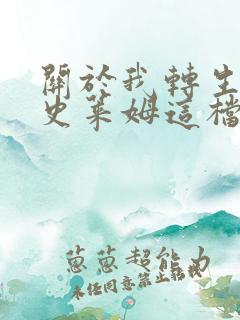 關於我轉生
史萊姆這檔
蔥蔥超能力
未任同意禁止轉載